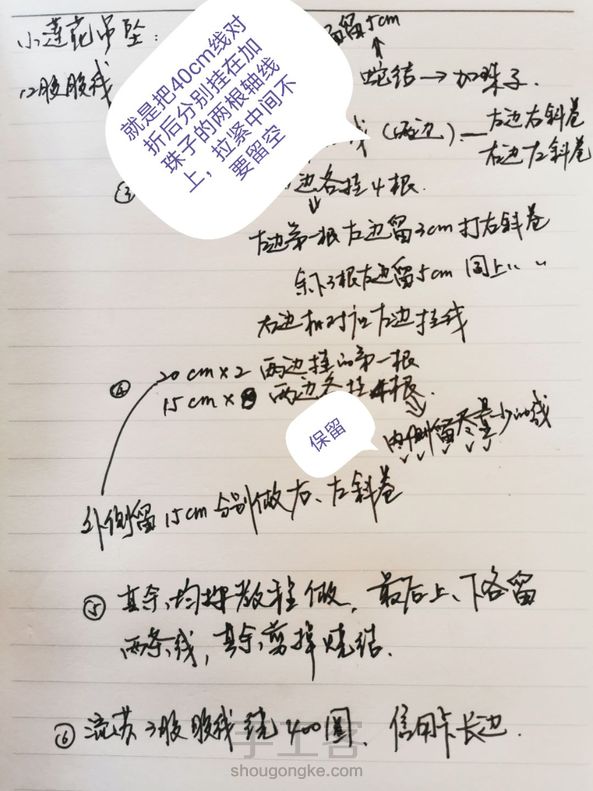 小莲花吊坠：
留5cm
12股股线
蛇结→加珠子.
就是把40cm线对
折后分别挂在加
珠子的两根轴线
上，拉紧中间不
要留空
线（两边）.
左边右斜卷
右边左斜卷
③
边各挂4根.
左边第一根左边留3cm打右斜卷
余下3根左边留5cm 同上
右边相对应左边挂线
④ 20cm×2 两边挂的第一根
15cm×8 两边各挂4根.
保留
内侧留尽量少的线
外侧留15cm分别做右、左斜卷
⑤ 其余均按教程做，最后上、下各留
两条线，其余剪掉烧结.
⑥ 流苏3股股线绕400圈、信用卡长边.
手工客
shougongke.com